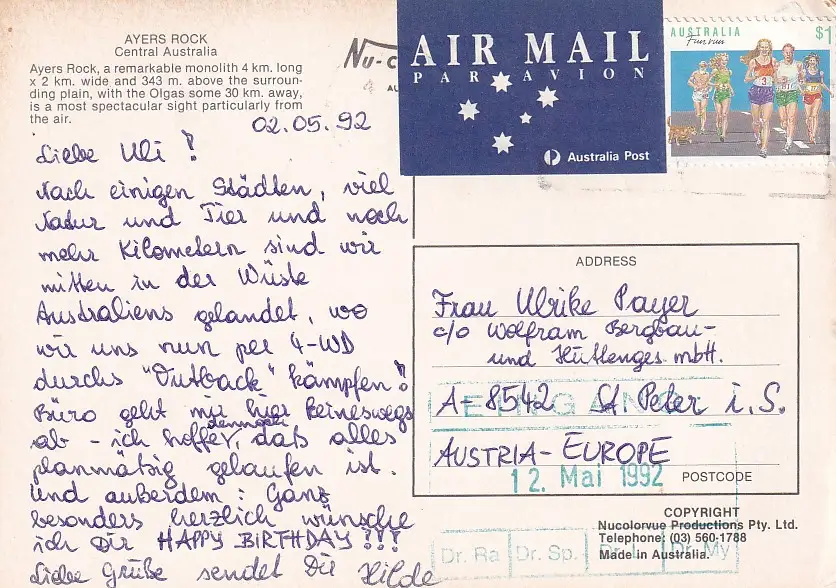 AYERS ROCK
Central Australia
Ayers Rock, a remarkable monolith 4 km. long
x 2 km. wide and 343 m. above the surroun-
ding plain, with the Olgas some 30 km. away,
is a most spectacular sight particularly from
the air.
02.05.92
Liebe Uli!
Nach einigen Städten, viel
Natur und Tier und noch
mehr Kilometern sind wir
mitten in der Wüste
Australiens gelandet, wo
wir uns nun per 4-WD
durchs "Outback" kämpfen!
Büro geht mir hier keineswegs
ab - ich hoffe, dennoch daß alles
planmäßig gelaufen ist.
Und außerdem: Ganz
besonders herzlich wünsche
ich Dir HAPPY BIRTHDAY!!!
Liebe Grüße sendet Dir Hilde
Nu-c
AU
AIR MAIL
PAR AVION
Australia Post
AUSTRALIA
Fun run
$1
ADDRESS
Frau Ulrike Payer
c/o Wolfram Bergbau-
und Hüttenges. mbH.
A-8542 St. Peter i.S.
AUSTRIA-EUROPE
POSTCODE
EINGANG
12. Mai 1992
Dr. Ra
Dr. Sp.
Dr. L
Dr. My
COPYRIGHT
Nucolorvue Productions Pty. Ltd.
Telephone: (03) 560-1788
Made in Australia.